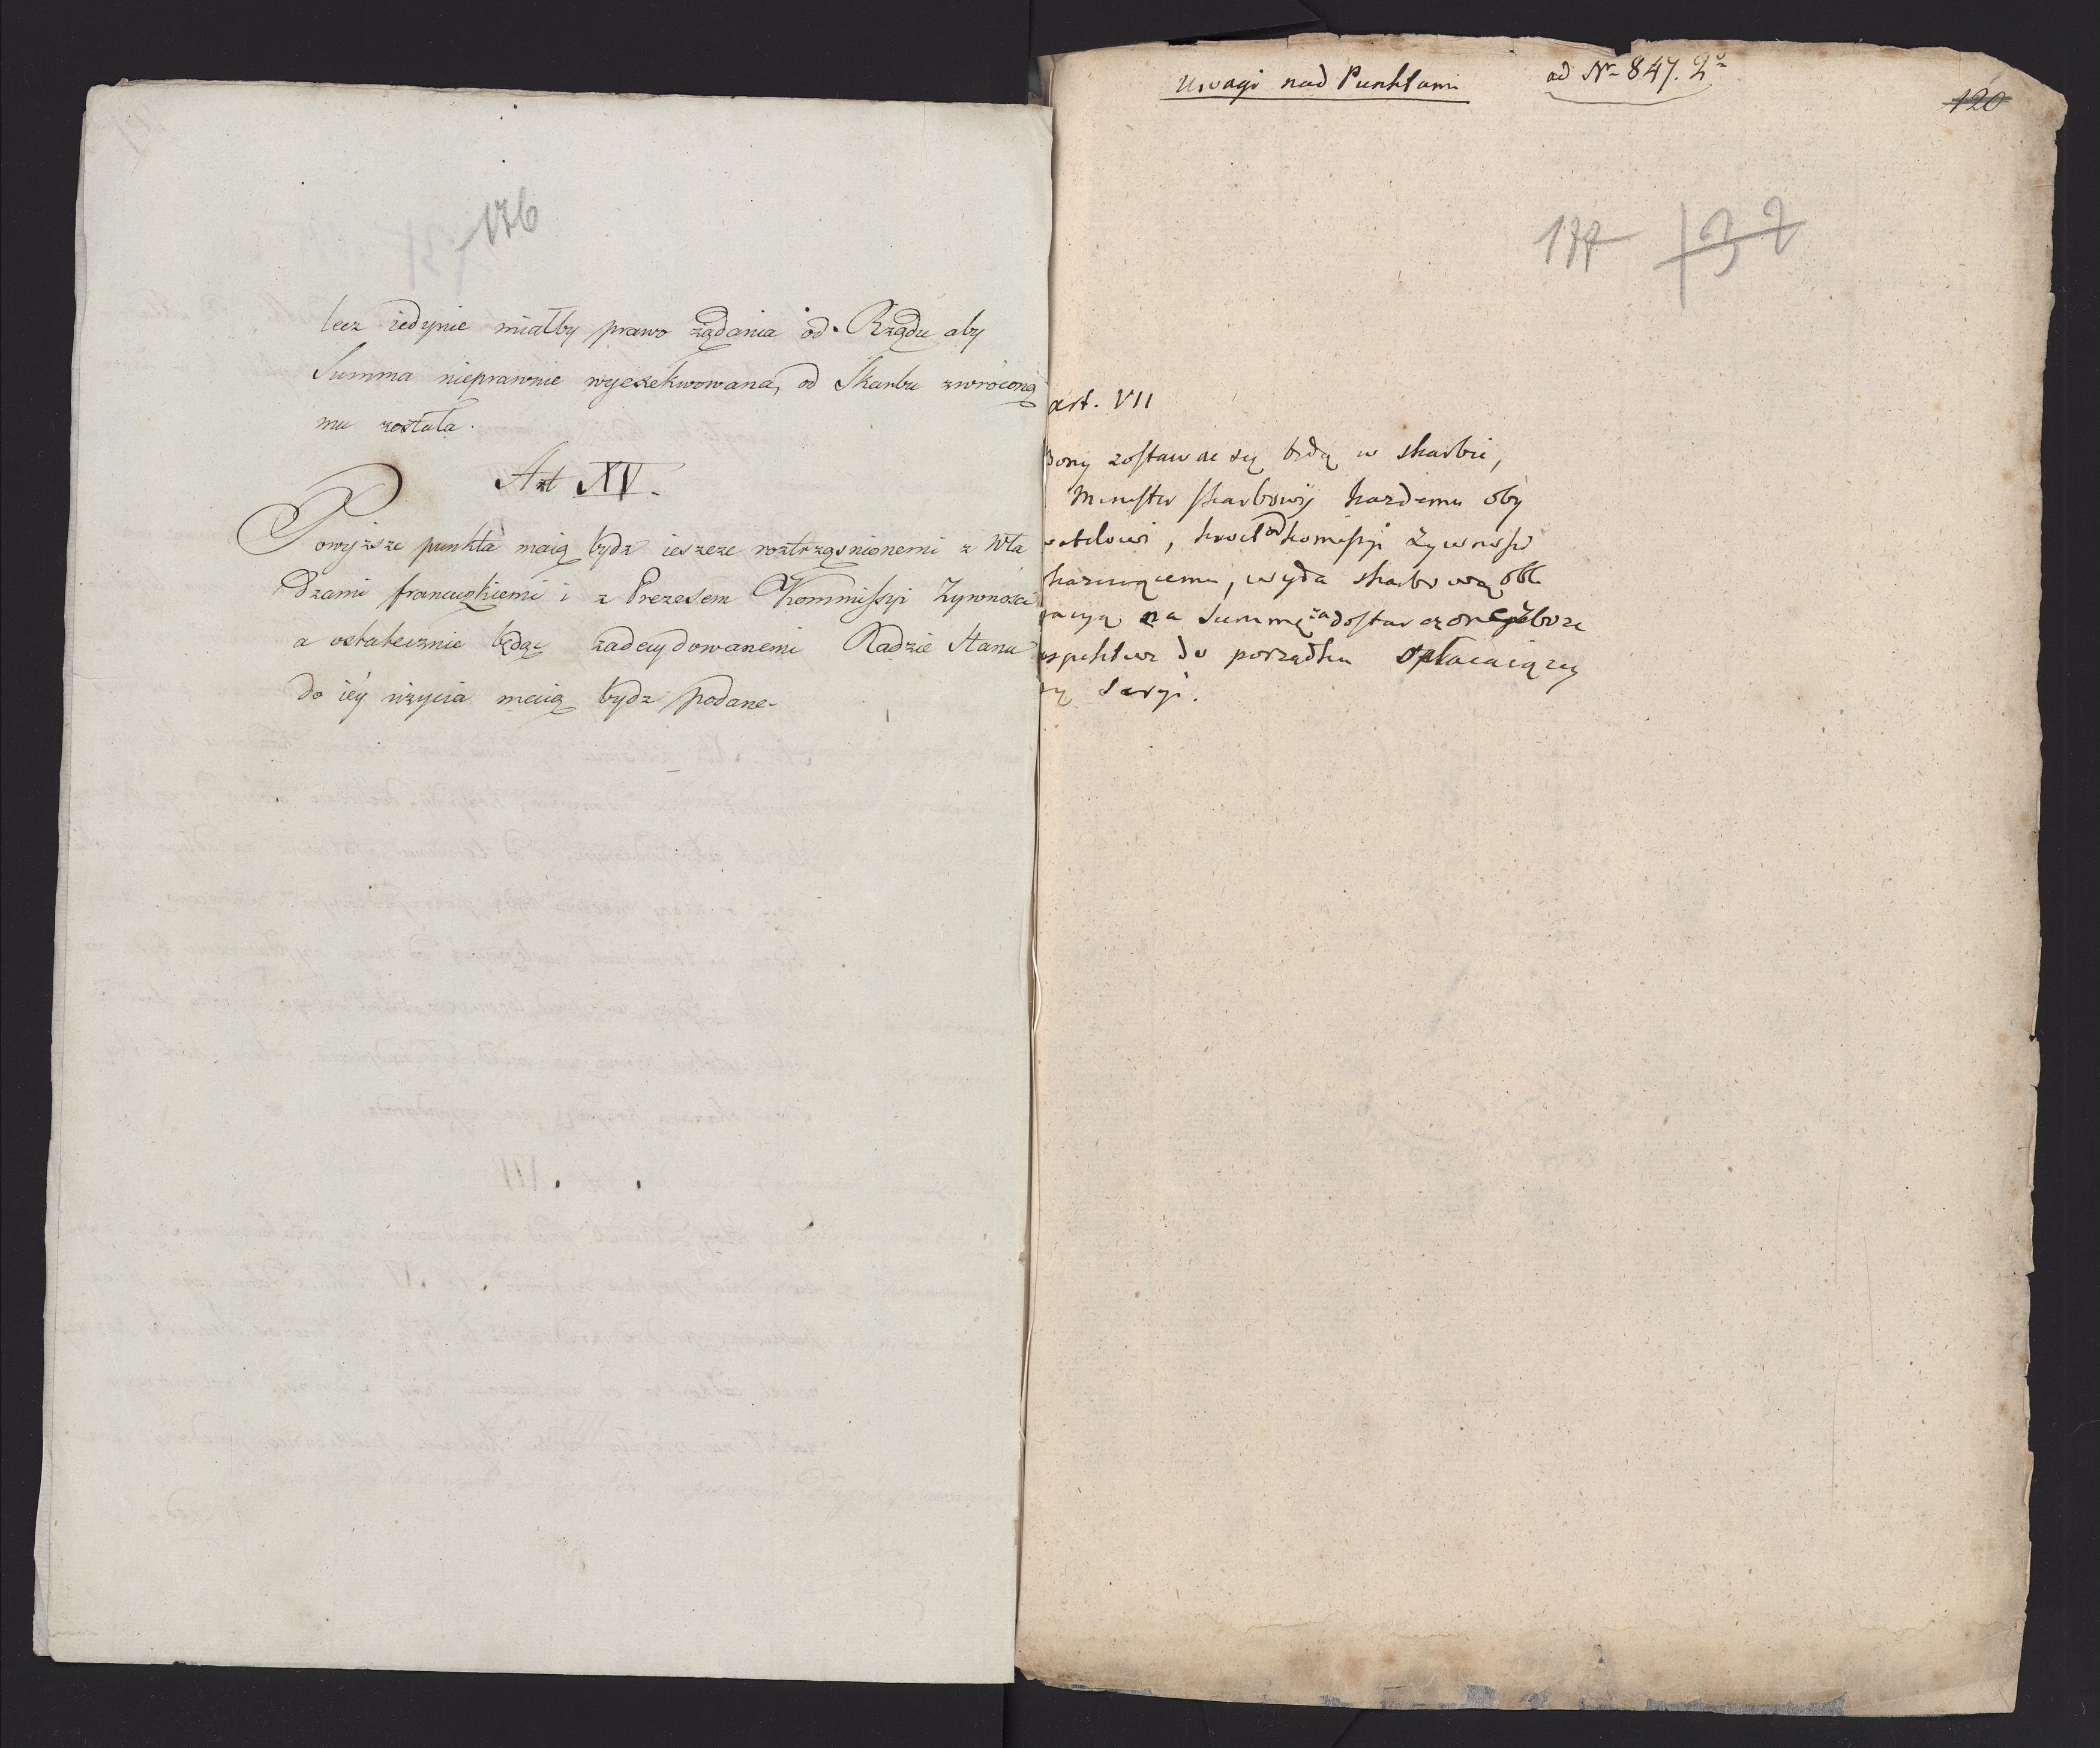 176
lecz iedynie miałby prawo żądania od Rządu aby
Summa nieprawnie wyexekwowana, od Skarbu zwróconą
mu została.
Art XV.
Powyższe punkta maią bydź ieszcze roztrząsnionemi z Wła
dzami francuzkiemi i z Prezesem Kommissyi Żywności
a ostatecznie będąc zadecydowanemi Radzie Stanu
do iéy użycia maią bydź podane.
Uwagi nad Punktami
ad Nr 847. 2°
120
177 132
art. VII
Bony zostawać się będą w skarbie,
Minister skarbowy każdemu oby
watelowi, kwit od komissyi żywności
kazuiącemu, wyda skarbową obli
gacyą na Summę za dostarczone zboże
respective do porządku opłacaiącey
się Seryi.